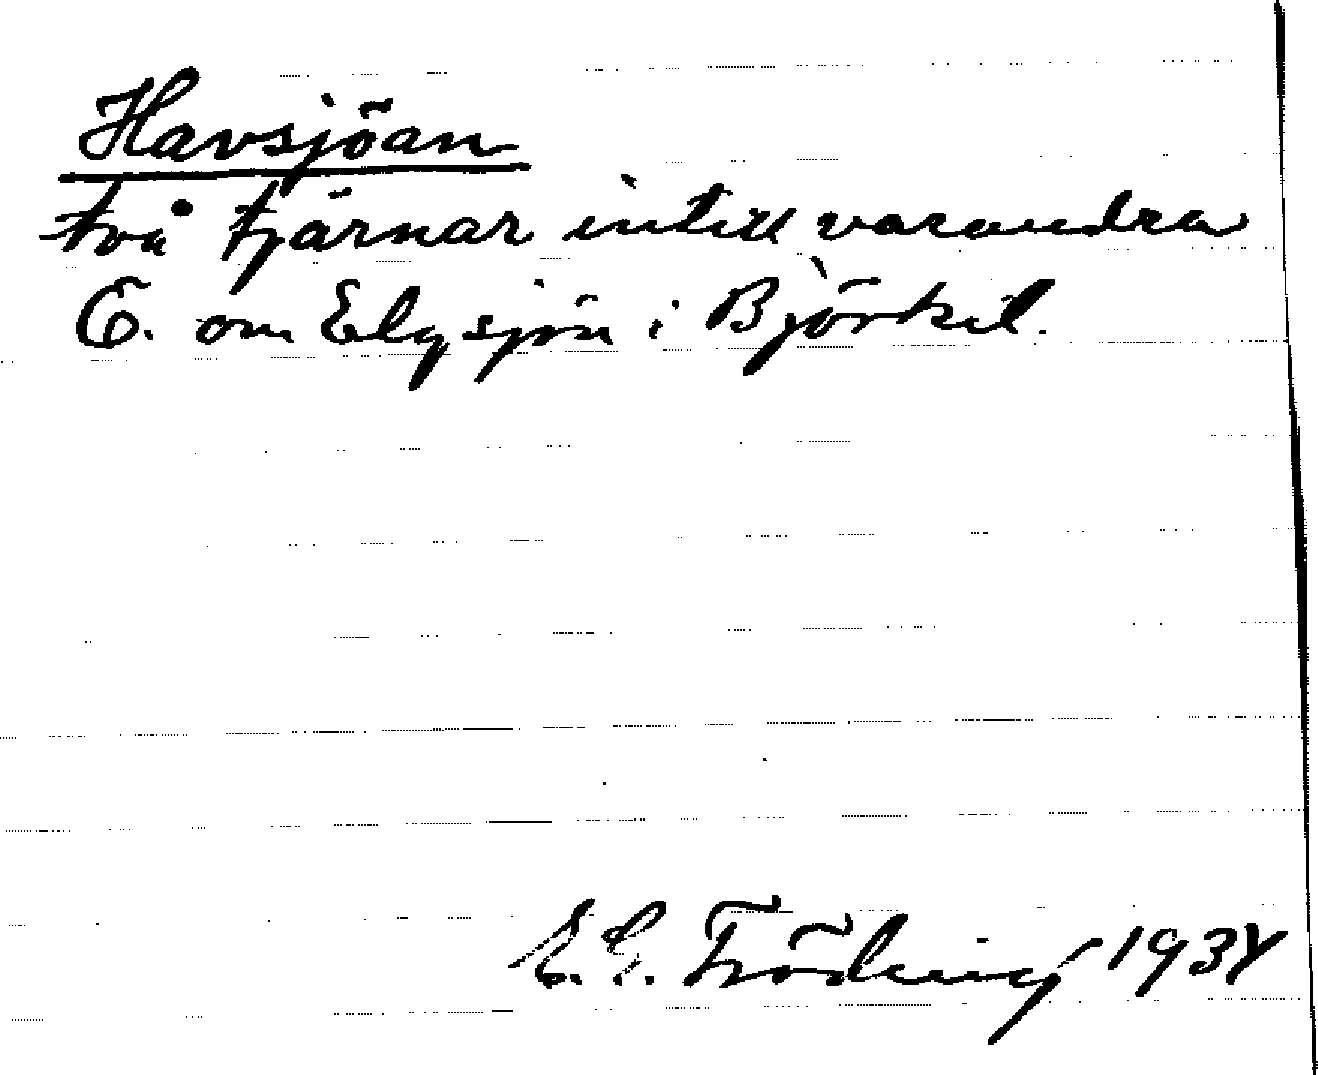 Havsjöan
två tjärnar intill varandra
E. om Elgsjön i Björkil.
E. E. Fröding 1934